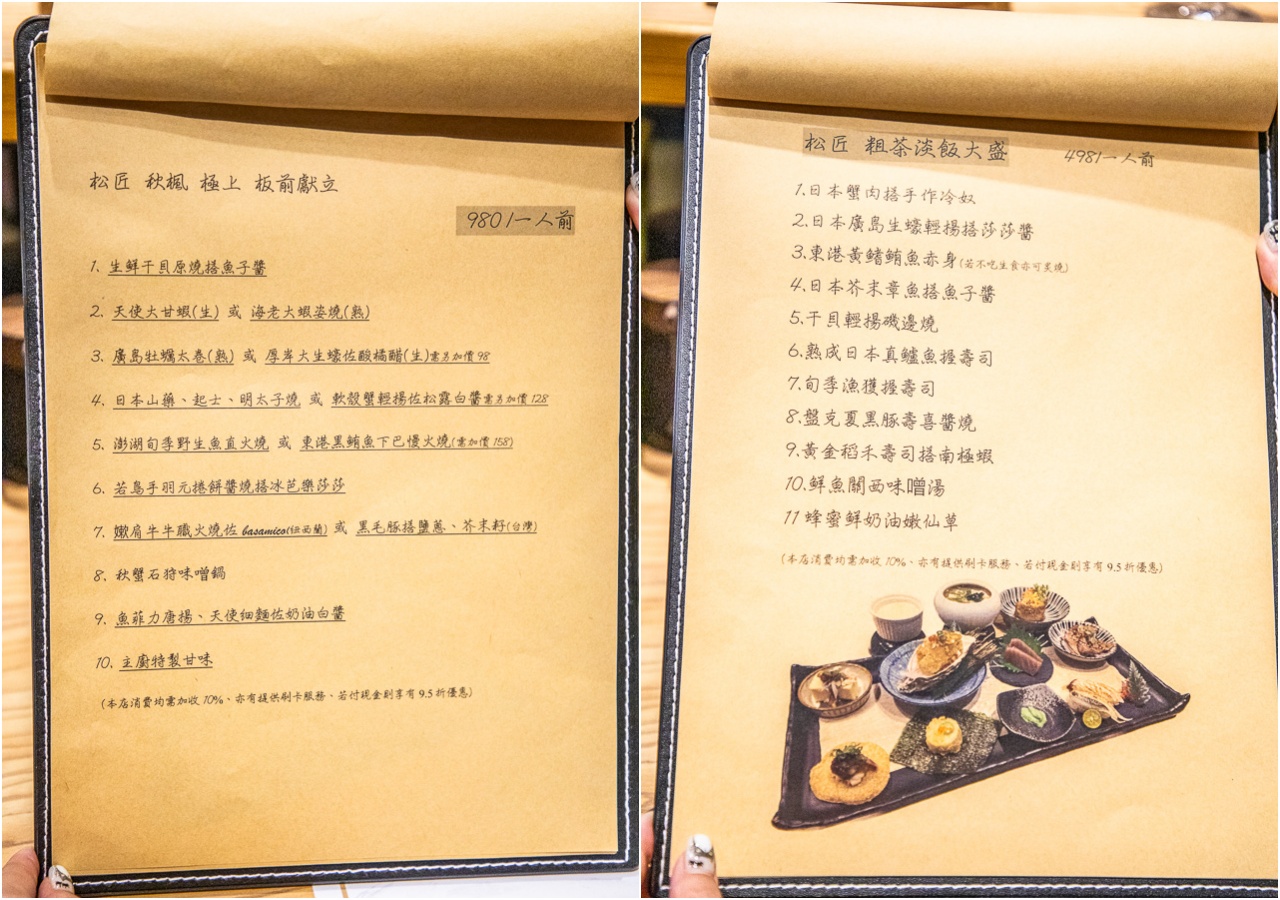 松匠 秋楓 極上 板前獻立
980/一人前
1. 生鮮干貝原燒搭魚子醬
2. 天使大甘蝦(生) 或 海老大蝦姿燒(熟)
3. 廣島牡蠣太卷(熟) 或 厚岸大生蠔佐酸橘醋(生)需另加價98
4. 日本山藥、起士、明太子燒 或 軟殼蟹輕揚佐松露白醬需另加價128
5. 澎湖旬季野生魚直火燒 或 東港黑鮪魚下巴慢火燒(需加價158)
6. 若鳥手羽元捲餅醬燒搭冰芭樂莎莎
7. 嫩肩牛牛職火燒佐 basamico(紐西蘭) 或 黑毛豚搭鹽蔥、芥末籽(台灣)
8. 秋蟹石狩味噌鍋
9. 魚菲力唐揚、天使细麵佐奶油白醬
10. 主廚特製甘味
(本店消費均需加收10%、亦有提供刷卡服務、若付現金則享有9.5折優惠)
松匠 粗茶淡飯大盛
498/一人前
1.日本蟹肉搭手作冷奴
2.日本廣島生蠔輕揚搭莎莎醬
3.東港黃鰭鮪魚赤身(若不吃生食亦可炙燒)
4.日本芥末章魚搭魚子醬
5.干貝輕揚磯邊燒
6.熟成日本真鱸魚握壽司
7.旬季漁獲握壽司
8.盤克夏黑豚壽喜醬燒
9.黃金稻禾壽司搭南極蝦
10.鮮魚關西味噌湯
11 蜂蜜鮮奶油嫩仙草
(本店消費均需加收10%、亦有提供刷卡服務、若付現金則享有9.5折優惠)